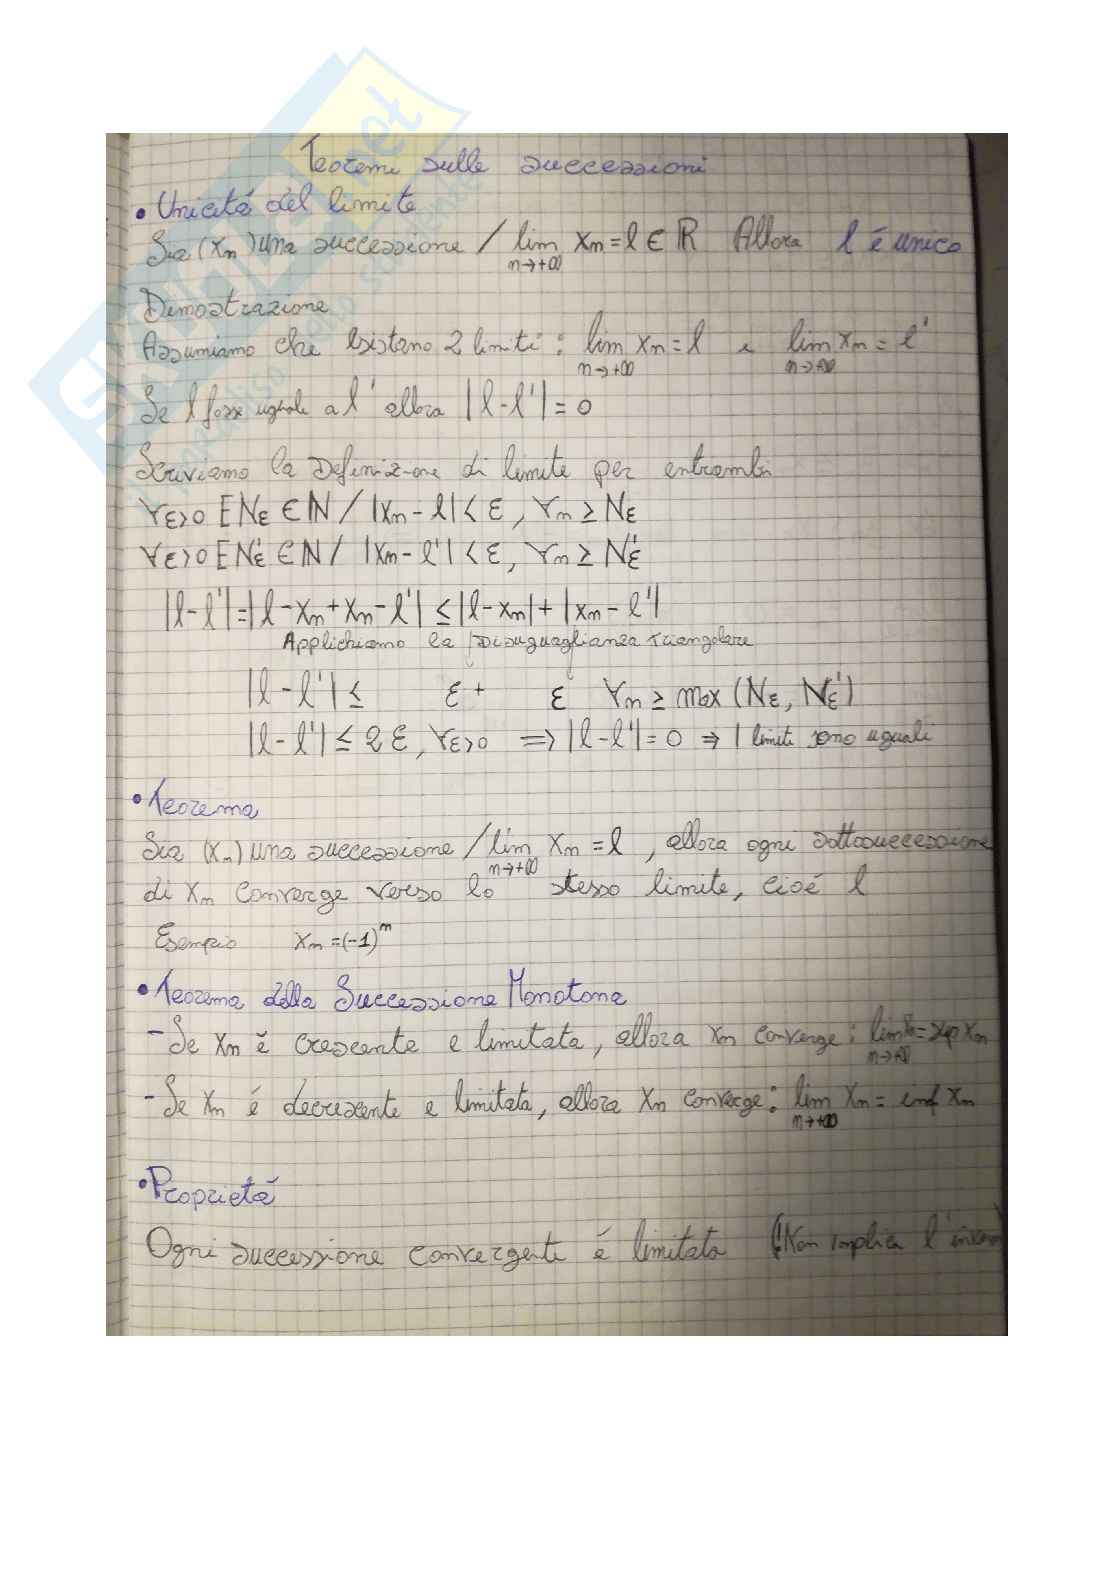 Teoremi sulle successioni
• Unicità del limite
Sia (xn) una successione / lim xn = l ∈ ℝ Allora l é unico
n→+∞
Dimostrazione
Assumiamo che esistano 2 limiti : lim xn = l e lim xn = l'
n→+∞ n→+∞
Se l fosse uguale a l' allora |l - l'| = 0
Scriviamo la Definizione di limite per entrambi
∀ε>0 ∃ Nε ∈ ℕ / |xn - l| < ε, ∀n ≥ Nε
∀ε>0 ∃ N'ε ∈ ℕ / |xn - l'| < ε, ∀n ≥ N'ε
|l - l'| = |l - xn + xn - l'| ≤ |l - xn| + |xn - l'|
Applichiamo la Disuguaglianza triangolare
|l - l'| ≤ ε + ε ∀n ≥ max (Nε, N'ε)
|l - l'| ≤ 2ε, ∀ε>0 ⇒ |l - l'| = 0 ⇒ I limiti sono uguali
• Teorema
Sia (xn) una successione / lim xn = l, allora ogni sottosuccessione
n→+∞
di xn converge verso lo stesso limite, cioé l
Esempio xn = (-1)^n
• Teorema della Successione Monotona
- Se xn é crescente e limitata, allora xn converge : lim xn = sup xn
n→+∞
- Se xn é decrescente e limitata, allora xn converge : lim xn = inf xn
n→+∞
• Proprietá
Ogni successione convergente é limitata (!Non implica l'inverso)